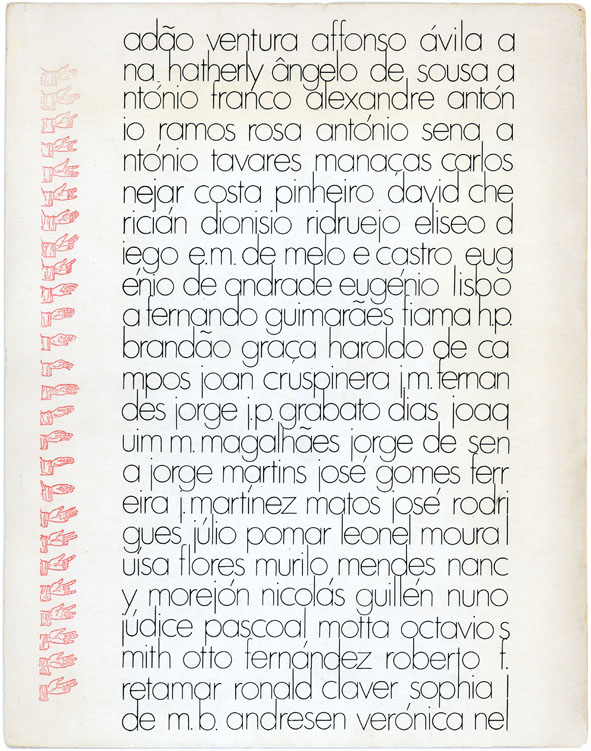 adão ventura affonso ávila a
na hatherly ângelo de sousa a
ntónio franco alexandre antón
io ramos rosa antónio sena a
ntónio tavares manaças carlos
nejar costa pinheiro david che
ricián dionisio ridruejo eliseo d
iego e.m. de melo e castro eug
énio de andrade eugénio lisbo
a fernando guimarães fiama h.p.
brandão graça haroldo de ca
mpos joan cruspinera j.m. fernan
des jorge j.p. grabato dias joaq
uim m. magalhães jorge de sen
a jorge martins josé gomes ferr
eira j. martínez matos josé rodri
gues júlio pomar leonel moura l
uísa flores murilo mendes nanc
y morejón nicolás guillén nuno
júdice pascoal motta octavio s
mith otto fernández roberto f.
retamar ronald claver sophia 
de m.b. andresen verónica nel